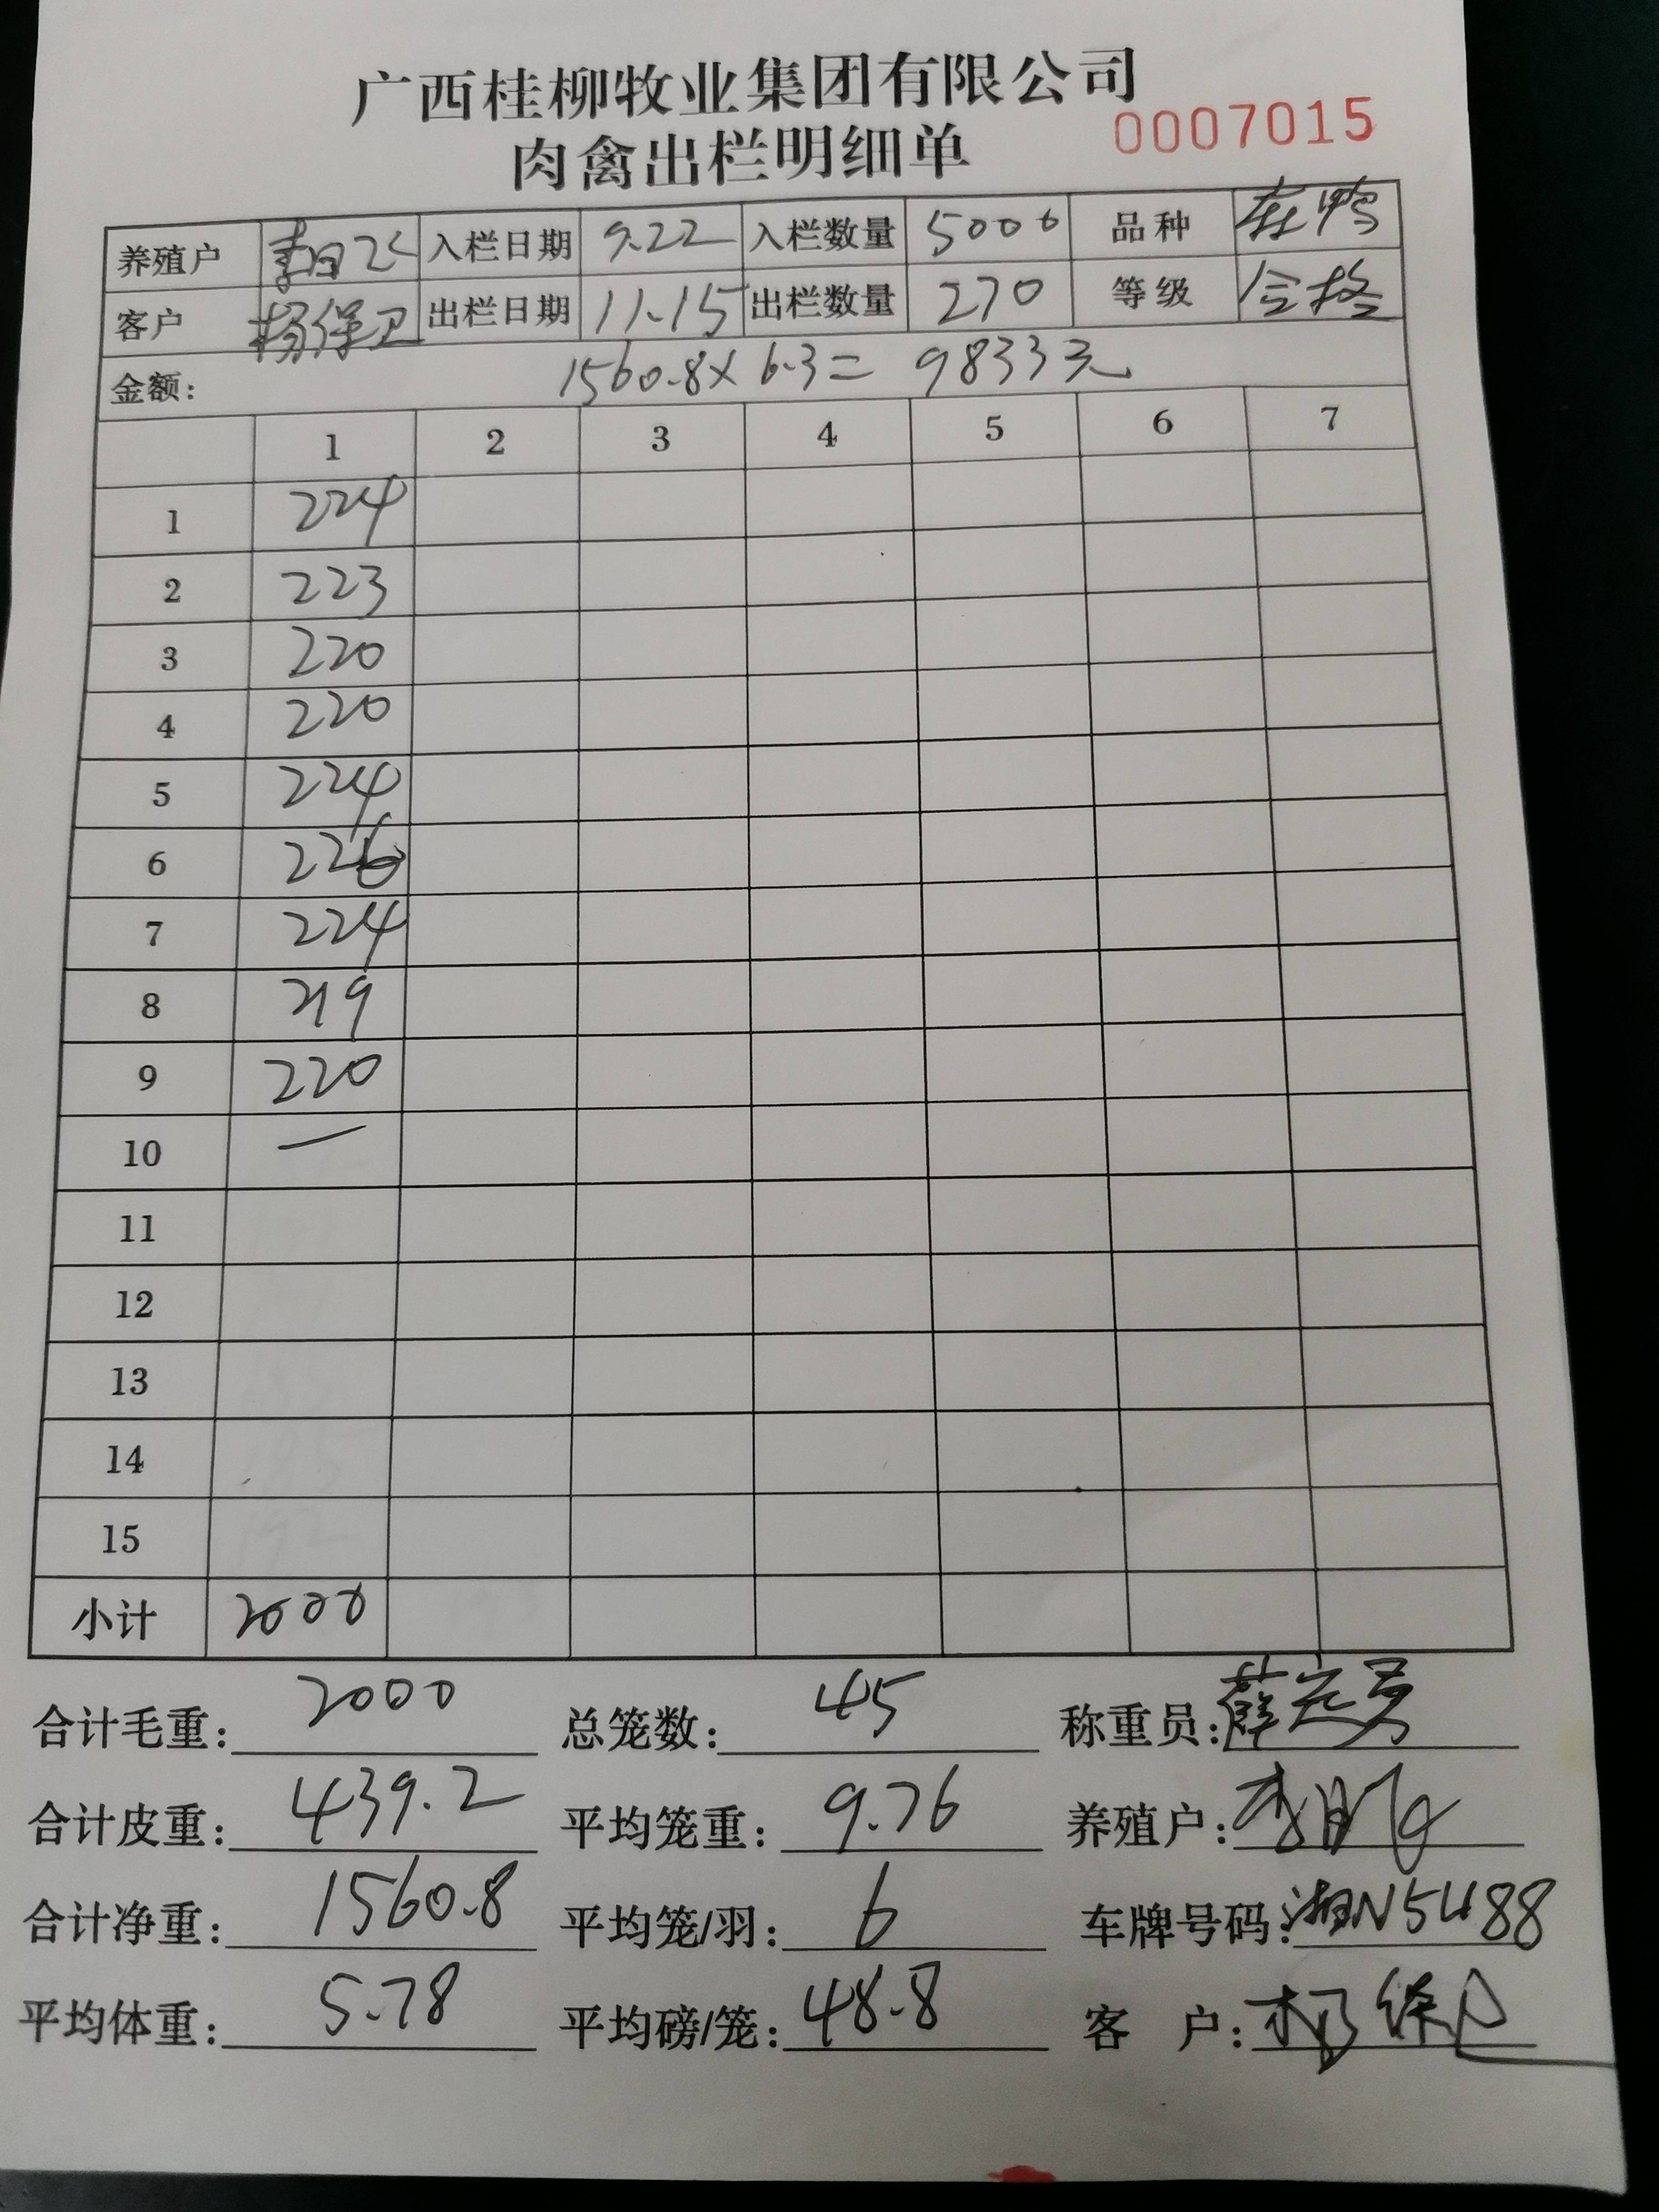 广西桂柳牧业集团有限公司
肉禽出栏明细单 0007015
养殖户 入栏日期 9.22 入栏数量 5000 品种 鸭
客户 杨保卫 出栏日期 11.15 出栏数量 270 等级 合格
金额: 1560.8×6.3= 9833元
1 2 3 4 5 6 7
1 224
2 223
3 220
4 220
5 224
6 226
7 224
8 219
9 220
10 —
11
12
13
14
15
小计 2000
合计毛重: 2000 总笼数: 45 称重员: 薛
合计皮重: 439.2 平均笼重: 9.76 养殖户: 李
合计净重: 1560.8 平均笼/羽: 6 车牌号码: 湘N5U88
平均体重: 5.78 平均磅/笼: 48.8 客 户: 杨保卫